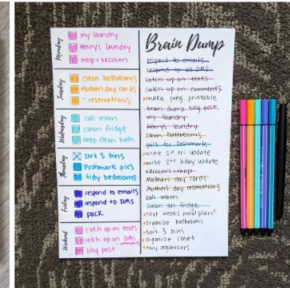 Monday
my laundry
henrys laundry
meg + session
Tuesday
clean bathrooms
mother day cards
+ reservations
Wednesday
call mom
clean fridge
deep clean bath
Thursday
sort 3 bins
Poshmark pics
tidy bedrooms
Friday
respond to emails
respond to DMs
pack
Weekend
catch up texts
catch up DMs
blog post
Brain Dump
respond to emails
respond to all DMS
catch up on texts
catch up on comments
make preg printable
brain dump blog post
my laundry
henrys laundry
clean bathrooms
pics for Poshmark
write 1st tri update
write 2nd bday update
Mothers Day cards
Mothers day reservations
call mom
clean out fridge
next weeks meal plans
organize bathroom
sort 3 bins
organize closet
toy organizers